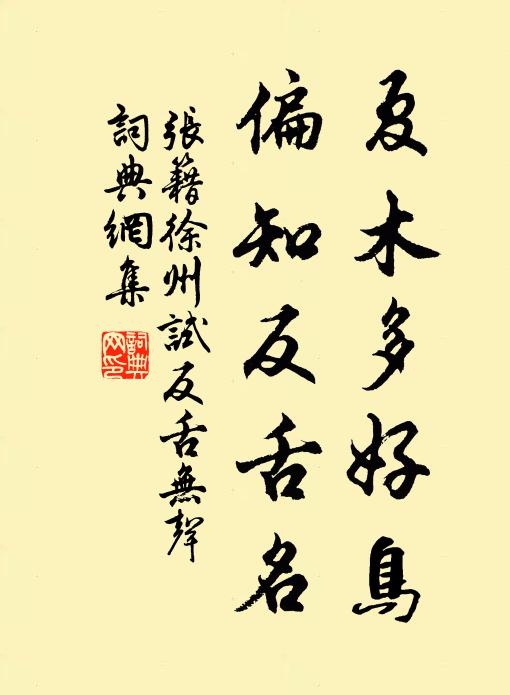 夏木多好鳥
偏知反舌名
張籍徐州試反舌無聲
詞典網集
詞典網印